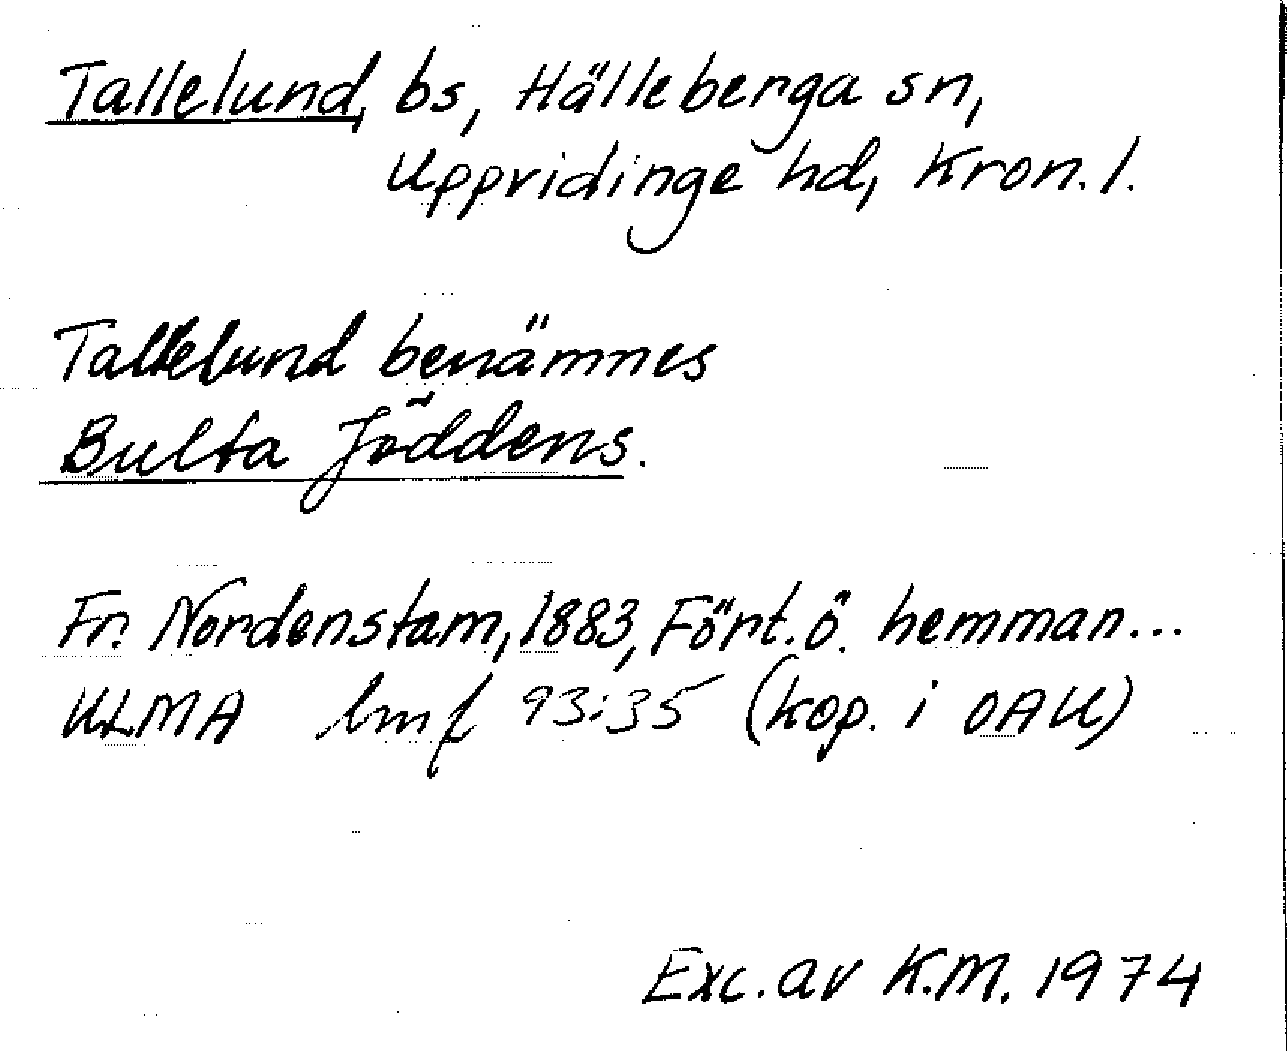 Tallelund, bs, Hälleberga sn,
Uppvidinge hd, Kron. l.
Tallelund benämnes
Bulta Jöddens.
Fr. Nordenstam, 1883, Fört. ö. hemman...
ULMA hmf 93:35 (kop. i OAU)
Exc. av K.M. 1974